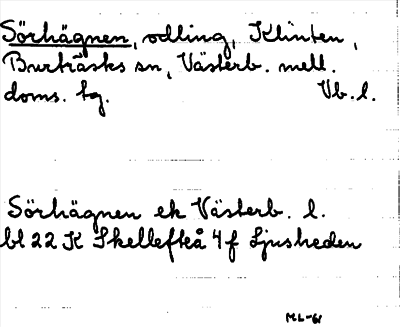 Sörhägnen, odling, Klinten,
Burträsks sn, Västerb. mell.
doms. tg. Vb. l.
Sörhägnen ek Västerb. l.
bl 22 K Skellefteå 4 f Ljusheden
ML-61